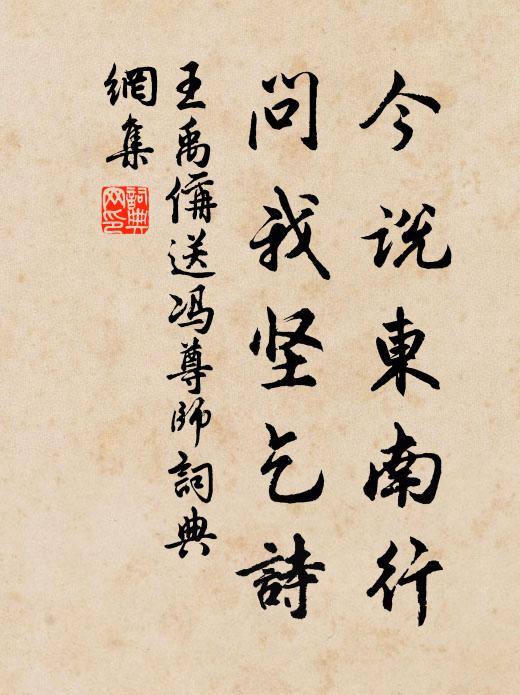 今说東南行
问我坚乞詩
王禹偁送冯尊師詞典
網集
詞典网印